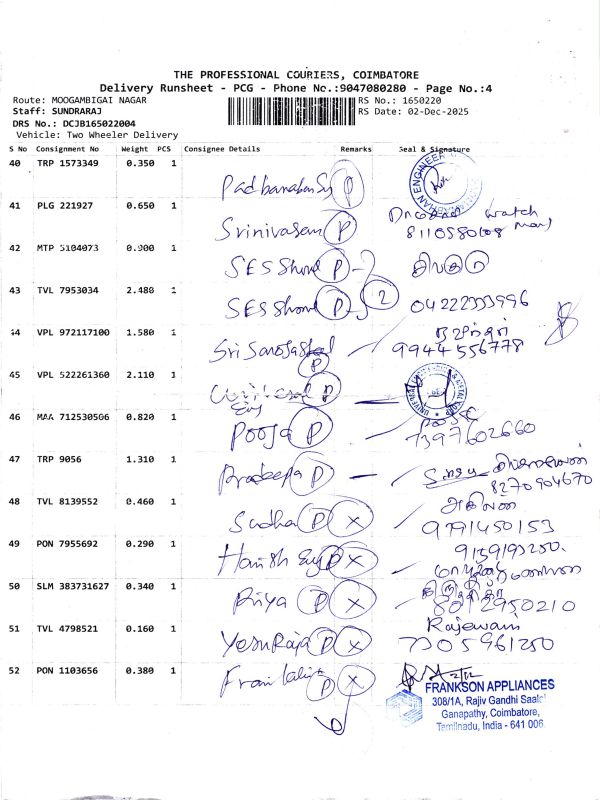 THE PROFESSIONAL COURIERS, COIMBATORE
Delivery Runsheet - PCG - Phone No.:9047080280 - Page No.:4
Route: MOOGAMBIGAI NAGAR
RS No.: 1650220
Staff: SUNDRARAJ
RS Date: 02-Dec-2025
DRS No.: DCJB165022004
Vehicle: Two Wheeler Delivery
S No Consignment No Weight PCS Consignee Details Remarks Seal & Signature
40 TRP 1573349 0.350 1
Padbanaban P
41 PLG 221927 0.650 1
Srinivasan P
watch
42 MTP 5104073 0.900 1
SES P
43 TVL 7953034 2.480 1
SES P 2 04222333996
44 VPL 972117100 1.580 1
Sri P 9944556778
45 VPL 522261360 2.110 1
P
46 MAA 712530506 0.820 1
Pooja P 7397602660
47 TRP 9056 1.310 1
Pradeepa P
8270904670
48 TVL 8139552 0.460 1
Sudha P X அகிலன்
9791450153
49 PON 7955692 0.290 1
Harish Eng P X 9159193250.
50 SLM 383731627 0.340 1
Priya P X 8012950210
51 TVL 4798521 0.160 1
Yesuraja P X Rajeswari
7305961250
52 PON 1103656 0.380 1
P X 2/12
FRANKSON APPLIANCES
308/1A, Rajiv Gandhi Saalai
Ganapathy, Coimbatore,
Tamilnadu, India - 641 006.